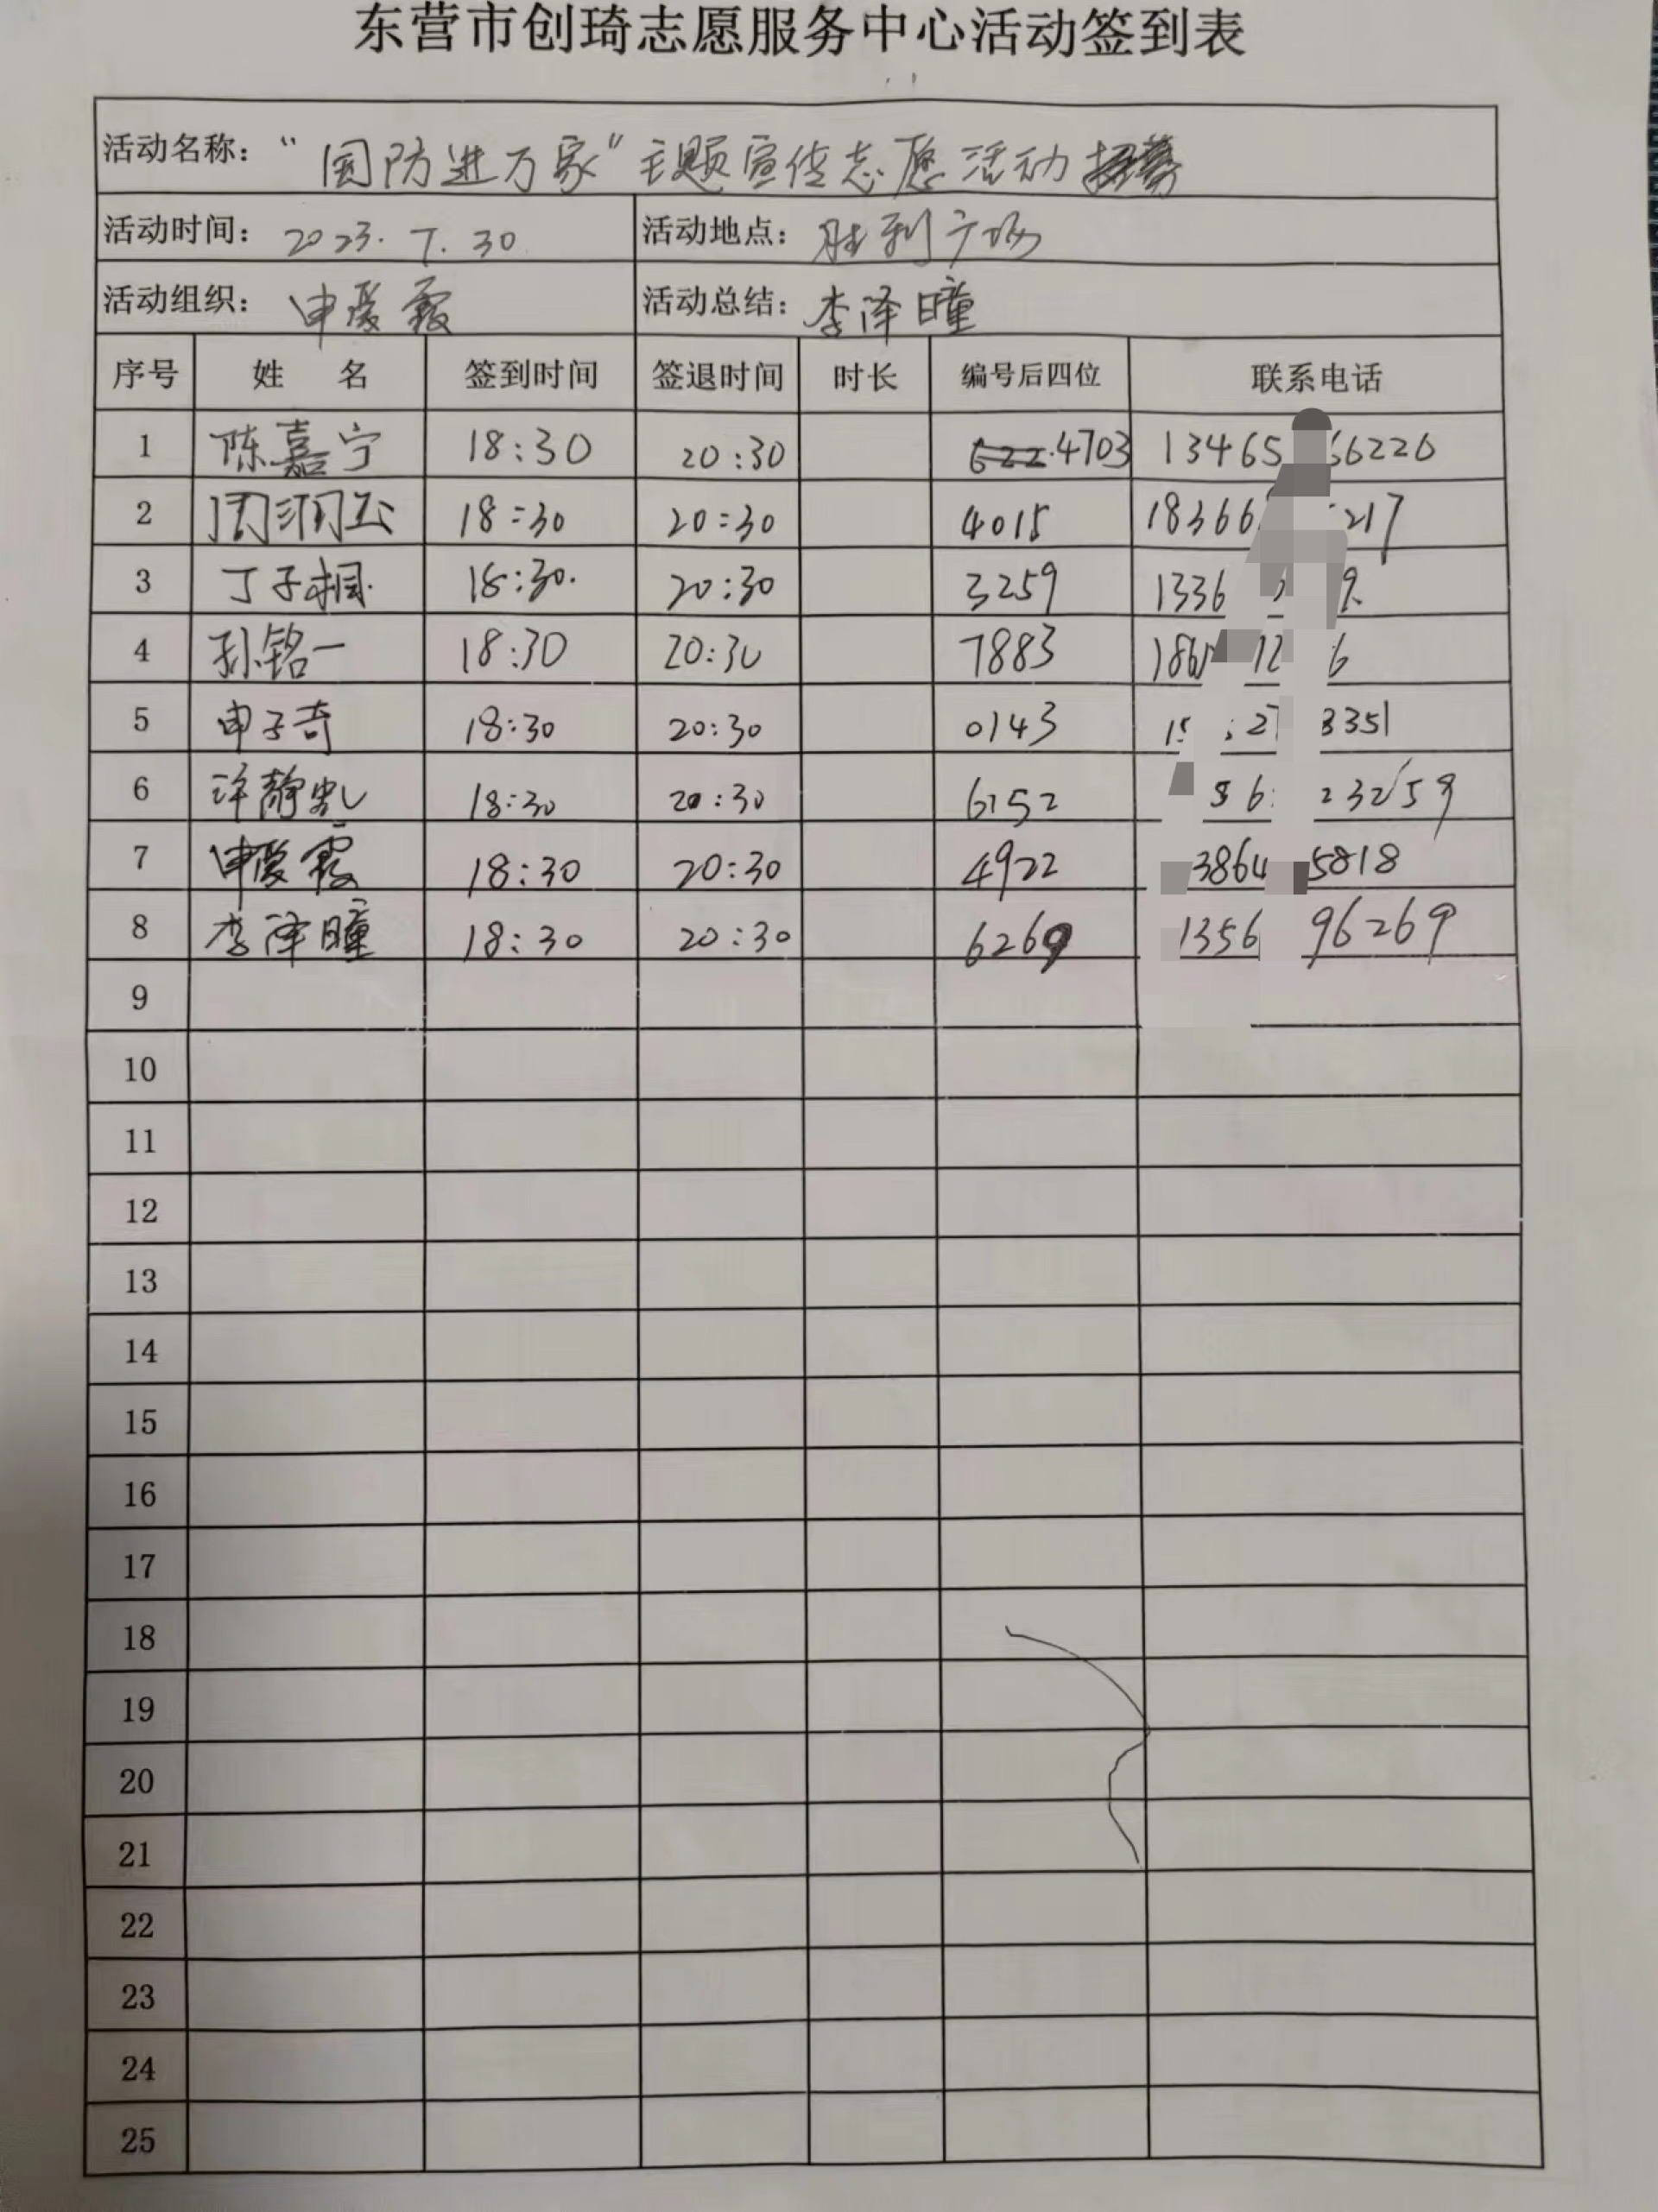 东营市创琦志愿服务中心活动签到表
活动名称：“国防进万家”主题宣传志愿活动
活动时间：2023.7.30 活动地点：胜利广场
活动组织：申爱霞 活动总结：李泽曈
序号 姓 名 签到时间 签退时间 时长 编号后四位 联系电话
1 陈嘉宁 18:30 20:30 4703 13465 66220
2 周润玉 18:30 20:30 4015 18366 217
3 丁子桐 18:30. 20:30 3259 1336 9
4 孙铭一 18:30 20:30 7883 186 12 6
5 申子奇 18:30 20:30 0143 27 3351
6 许静 18:30 20:30 6152 56 23259
7 申爱霞 18:30 20:30 4922 3864 5818
8 李泽曈 18:30 20:30 6269 1356 96269
9
10
11
12
13
14
15
16
17
18
19
20
21
22
23
24
25